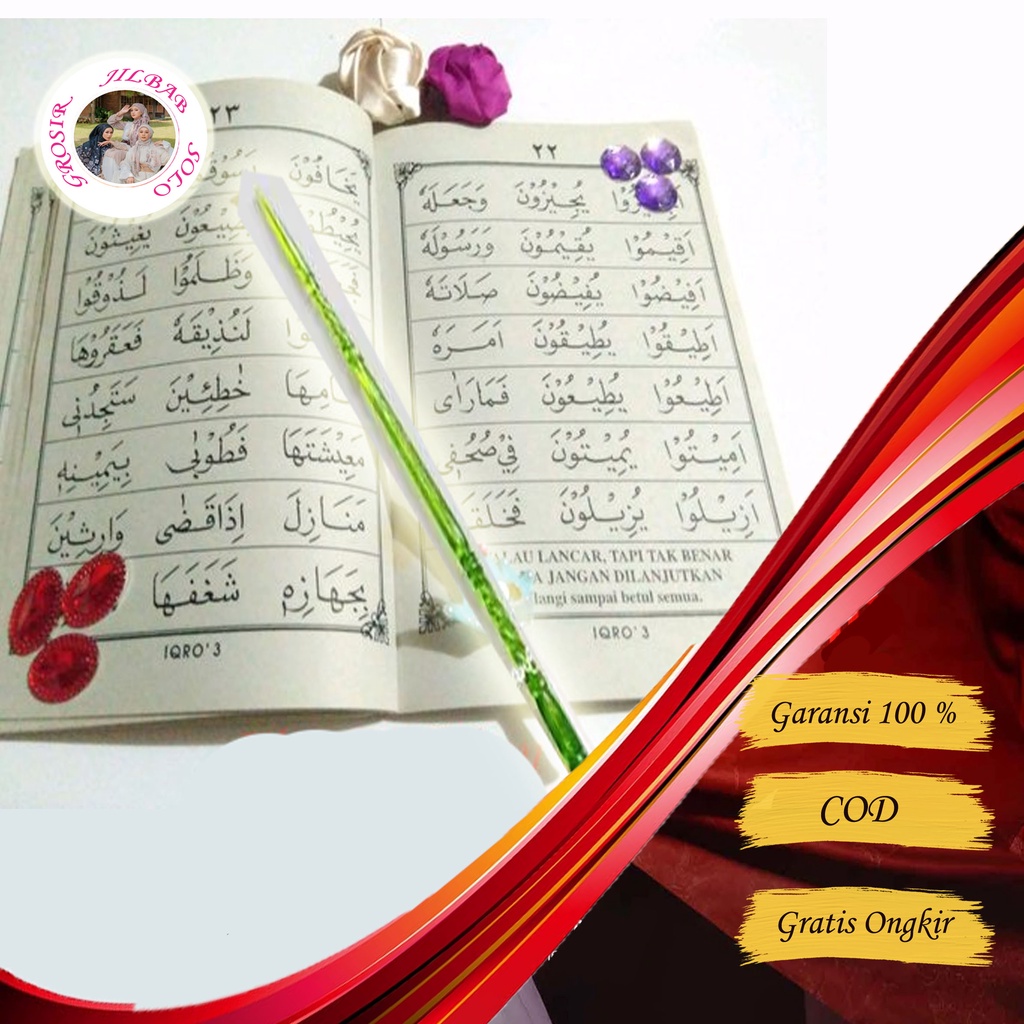 GROSIR JILBAB SOLO
٢٣
يَخَافُوْنَ
يَبِيْعُوْنَ يُغِيْثُوْنَ
وَظَلَمُوْا لَذُوْقُوْا
لَنُذِيْقَهٗ فَعَقَرُوْهَا
خٰطِئِيْنَ سَتَجِدُنِيْ
مَعِيْشَتَهَا فَطُوْبٰى بِيَمِيْنِهٖ
مَنَازِلَ اِذَاقَضٰى وَارِثِيْنَ
بِجَهَازِهِمْ شَغَفَهَا
IQRO'3
٢٢
يُجِيْزُوْنَ وَجَعَلَهٗ
اَقِيْمُوْا يُقِيْمُوْنَ وَرَسُوْلَهٗ
اَفِيْضُوْا يُفِيْضُوْنَ صَلَاتَهٗ
اَطِيْقُوْا يُطِيْقُوْنَ اَمَرَهٗ
اَطِيْعُوْا يُطِيْعُوْنَ فَمَارَاٰى
اَمِيْتُوْا يُمِيْتُوْنَ فِيْ صُحُفِ
اَزِيْلُوْا يُزِيْلُوْنَ
LANCAR, TAPI TAK BENAR
JANGAN DILANJUTKAN
sampai betul semua.
IQRO'3
Garansi 100 %
COD
Gratis Ongkir